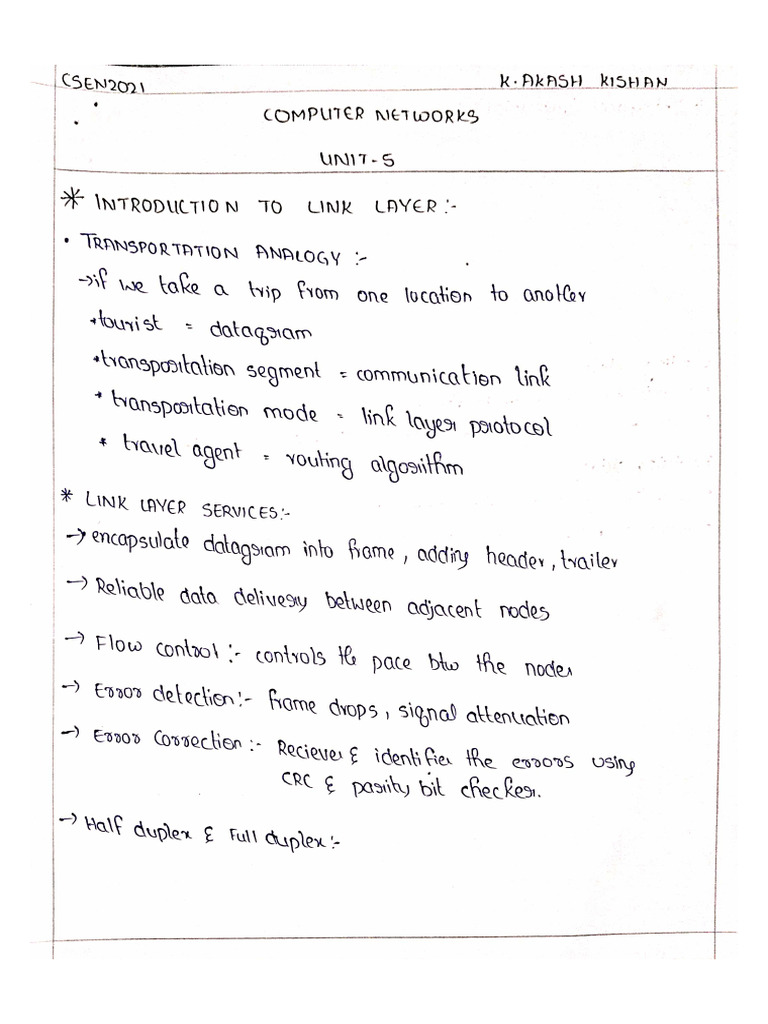 CSEN2021
K. AKASH KISHAN
COMPUTER NETWORKS
UNIT-5
* INTRODUCTION TO LINK LAYER:-
• TRANSPORTATION ANALOGY :-
→if we take a trip from one location to another
*tourist = datagram
*transportation segment = communication link
* transportation mode = link layer protocol
* travel agent = routing algorithm
* LINK LAYER SERVICES:-
→ encapsulate datagram into frame, adding header, trailer
→ Reliable data delivery between adjacent nodes
→ Flow control :- controls the pace btw the nodes
→ Error detection:- frame drops, signal attenuation
→ Error Correction :- Reciever & identifies the errors using
CRC & parity bit checker.
→ Half duplex & Full duplex:-